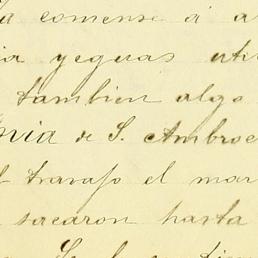 comense á a
yeguas uti
tambien algo
de S. Ambroc
travajo el mar
sacaron hasta